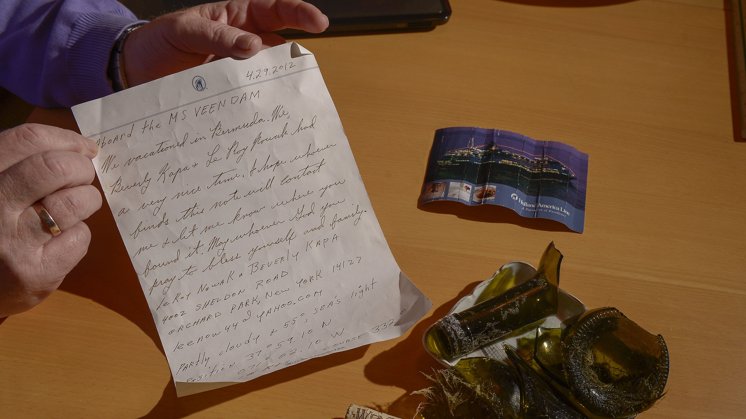 4.29.2012
Aboard the MS VEENDAM
We vacationed in Bermuda. We,
Beverly Kapa & Le Roy Nowak had
a very nice time. I hope whoever
finds this note will contact
me & let me know where you
found it. May whoever God you
pray to bless yourself and family.
LeRoy Nowak & BEVERLY KAPA
4002 SHELDON ROAD
ORCHARD PARK, NEW YORK 14127
@ YAHOO.COM
Partly cloudy + 55° SEA'S light
POSITION 37° 59.10 N
W
Holland America Line